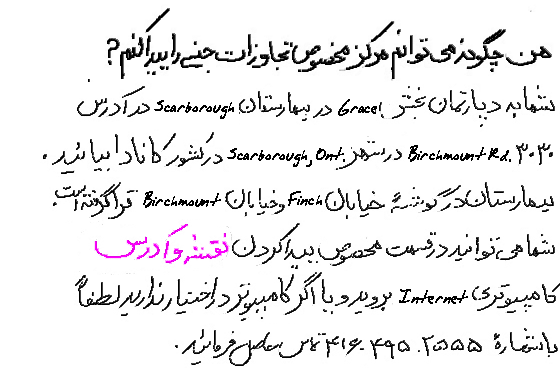 من چگونه می توانم مرکز مخصوص تجاوزات جنسی را پیدا کنم؟
شما به دپارتمان بخش Grace در بیمارستان Scarborough در آدرس
۳۰۳۰ Birchmount Rd. در شهر Scarborough, Ont. در کشور کانادا بیائید.
بیمارستان در گوشهٔ خیابان Finch و خیابان Birchmount قرار گرفته است.
شما می توانید در قسمت مخصوص پیدا کردن نقشه و آدرس
کامپیوتری Internet بروید و یا اگر کامپیوتر در اختیار ندارید لطفاً
با شمارهٔ ۴۱۶.۴۹۵.۲۵۵۵ تماس حاصل فرمائید.